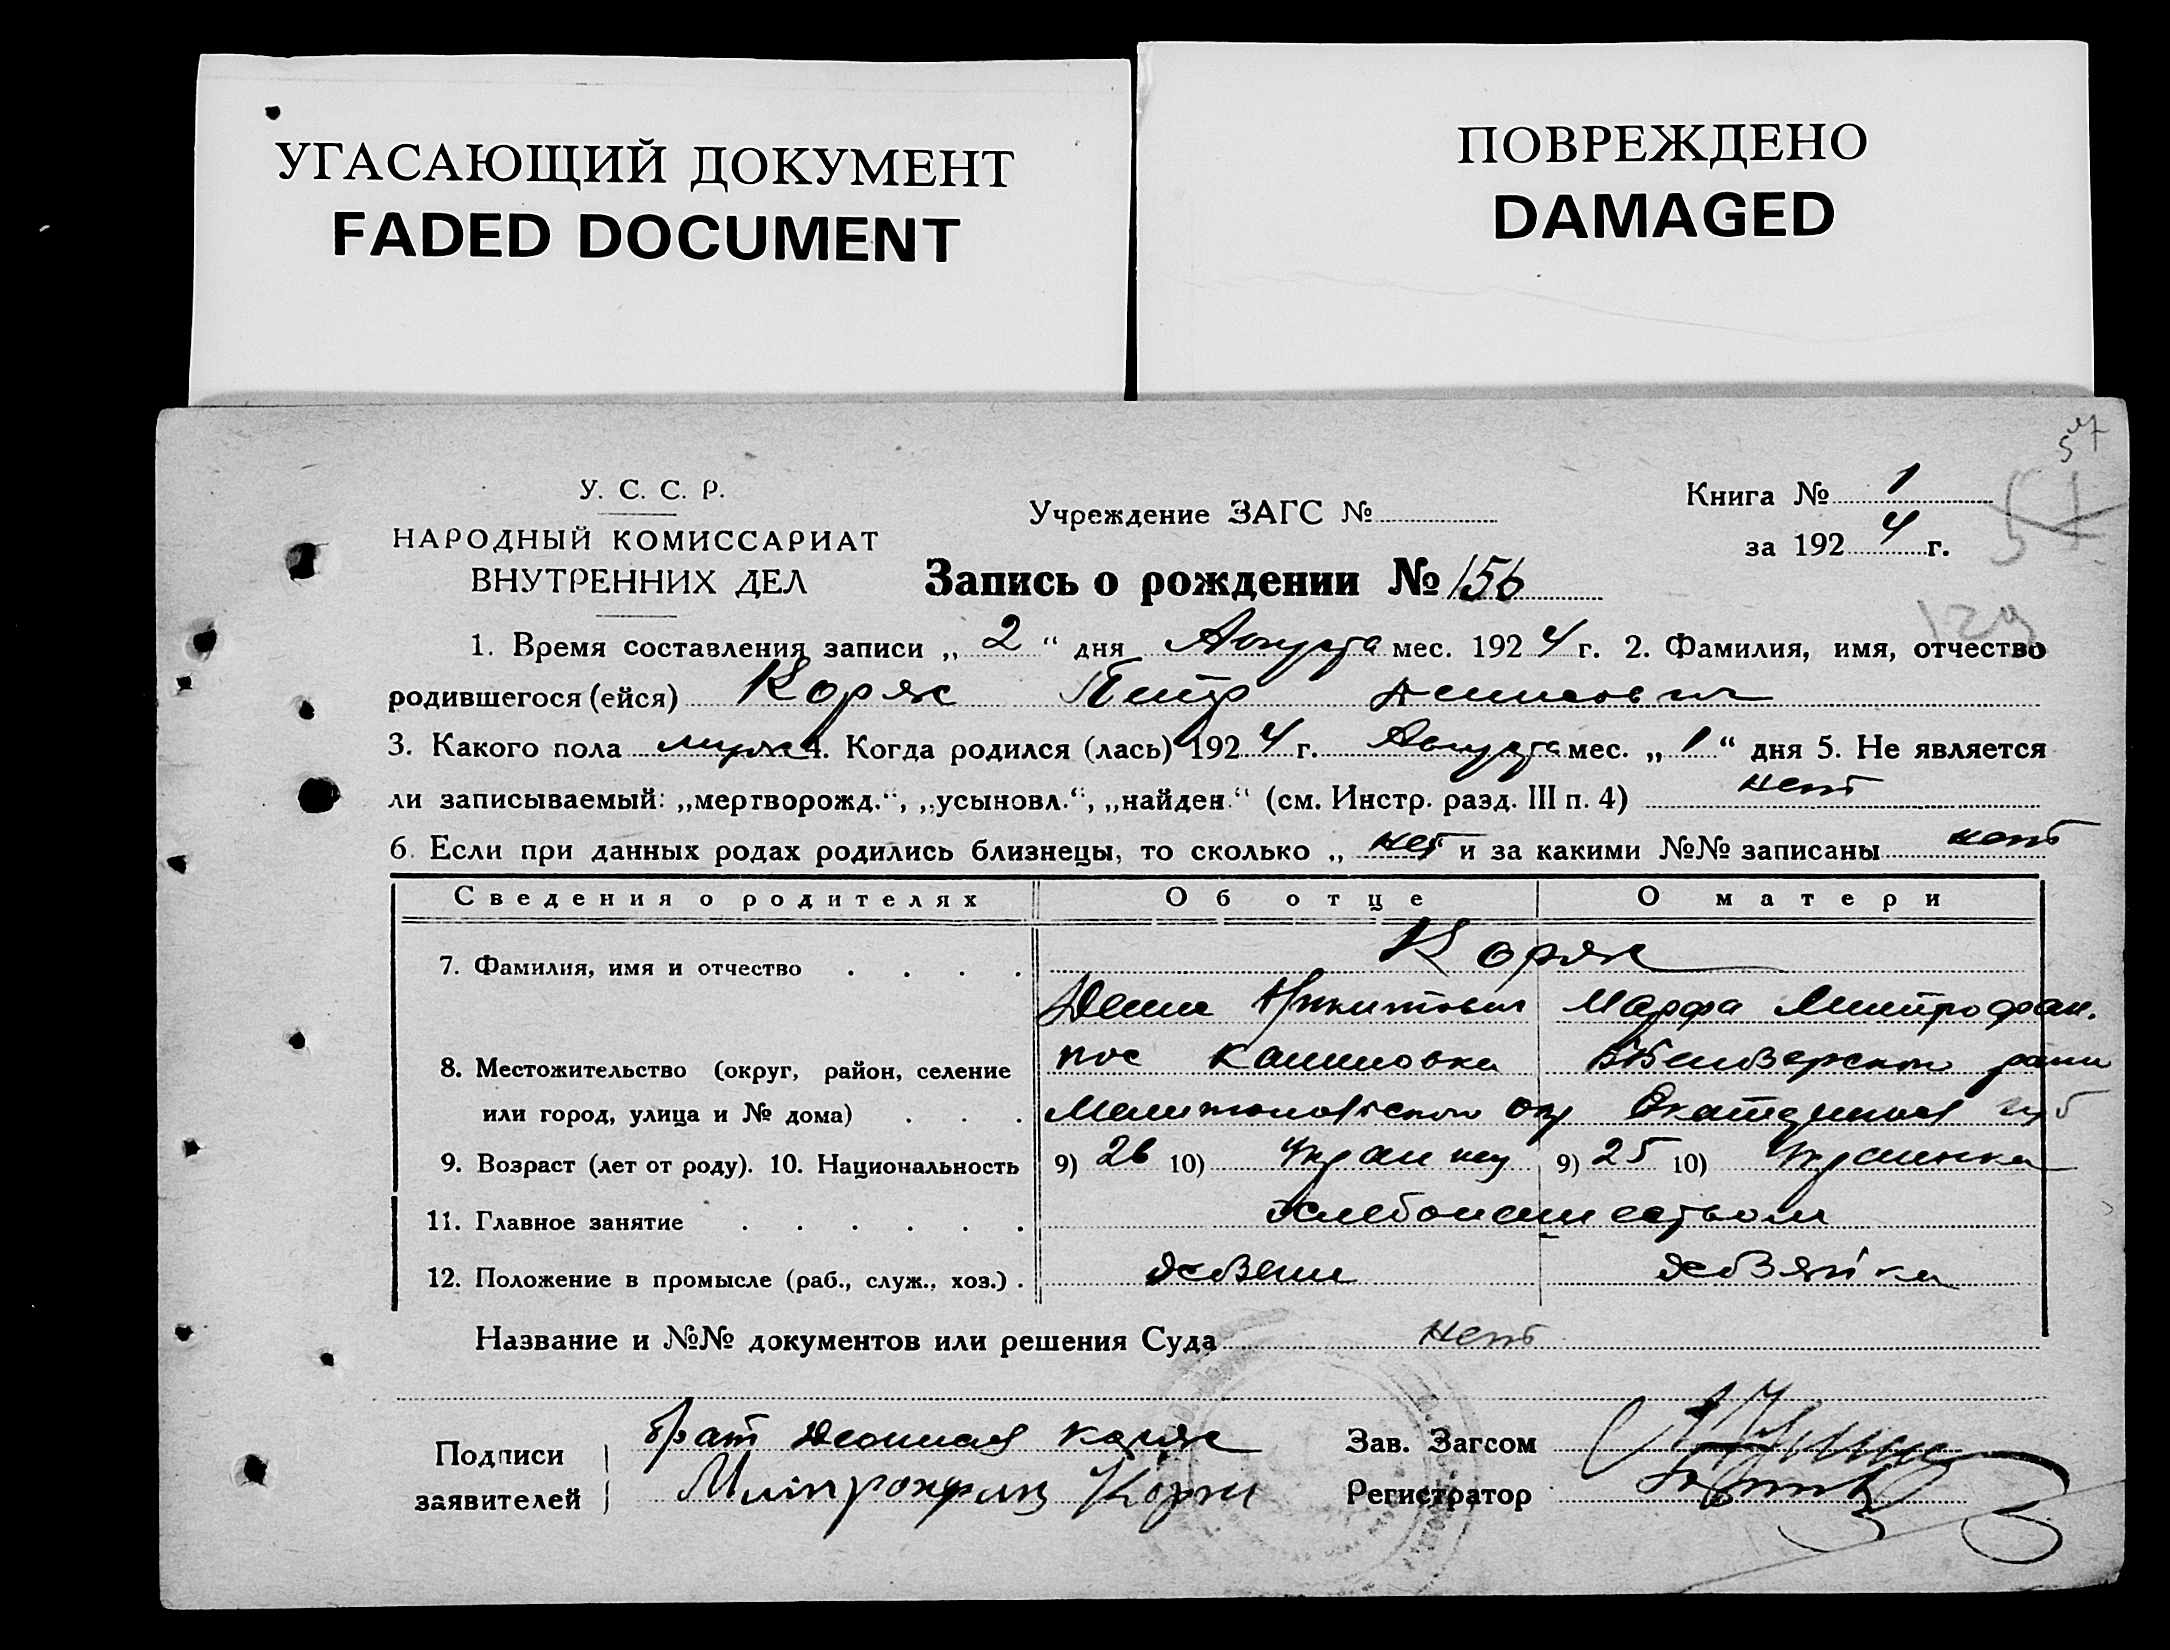 УГАСАЮЩИЙ ДОКУМЕНТ
FADED DOCUMENT
ПОВРЕЖДЕНО
DAMAGED
57
У. С. С. Р.
НАРОДНЫЙ КОМИССАРИАТ
ВНУТРЕННИХ ДЕЛ
Учреждение ЗАГС №
Книга № 1
за 1924 г.
Запись о рождении № 156
1. Время составления записи „ 2 “ дня Августа мес. 1924 г. 2. Фамилия, имя, отчество
родившегося (ейся) Коряк Петр Денисович
3. Какого пола мужск 4. Когда родился (лась) 1924 г. Августа мес. „ 1 “ дня 5. Не является
ли записываемый: „мертворожд.“, „усыновл.“, „найден.“ (см. Инстр. разд. III п. 4) нет
6. Если при данных родах родились близнецы, то сколько „ нет и за какими №№ записаны нет
Сведения о родителях Об отце О матери
7. Фамилия, имя и отчество Коряк
Денис Никитович Марфа Митрофан.
8. Местожительство (округ, район, селение пос
или город, улица и № дома) Мелитопольского окр Екатеринос губ
9. Возраст (лет от роду). 10. Национальность 9) 26 10) Украинец 9) 25 10) Украинка
11. Главное занятие
12. Положение в промысле (раб., служ., хоз.) хозяин хозяйка
Название и №№ документов или решения Суда нет
Подписи заявителей
брат Коряк
Митрофан Коряк
Зав. Загсом
Регистратор